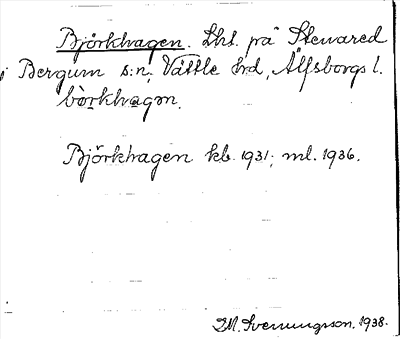 Björkhagen. Lht. på Stenared
i Bergum s:n, Vättle hrd, Älfsborgs l.
börkhagɷn.
Björkhagen kb. 1931; ml. 1936.
I.M. Svenungsson. 1938.